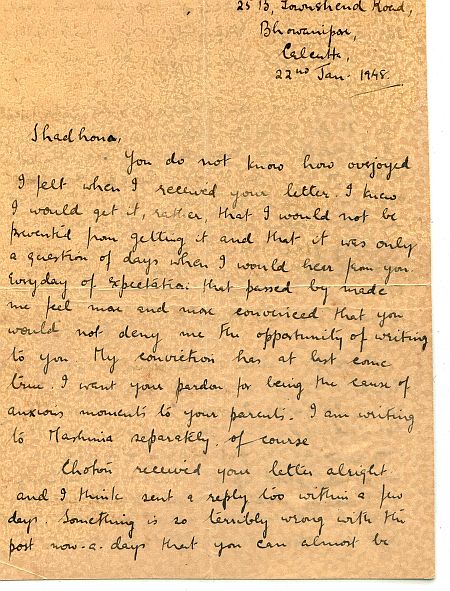 25 B, Townshend Road,
Bhowanipore,
Calcutta,
22nd Jan. 1948.
Shadhona,
You do not know how overjoyed
I felt when I received your letter. I knew
I would get it, rather, that I would not be
prevented from getting it and that it was only
a question of days when I would hear from you.
Everyday of expectation that passed by made
me feel more and more convinced that you
would not deny me the opportunity of writing
to you. My conviction has at last come
true. I want your pardon for being the cause of
anxious moments to your parents. I am writing
to Mashima separately, of course
Choton received your letter alright
and I think sent a reply too within a few
days. Something is so terribly wrong with the
post now-a-days that you can almost be